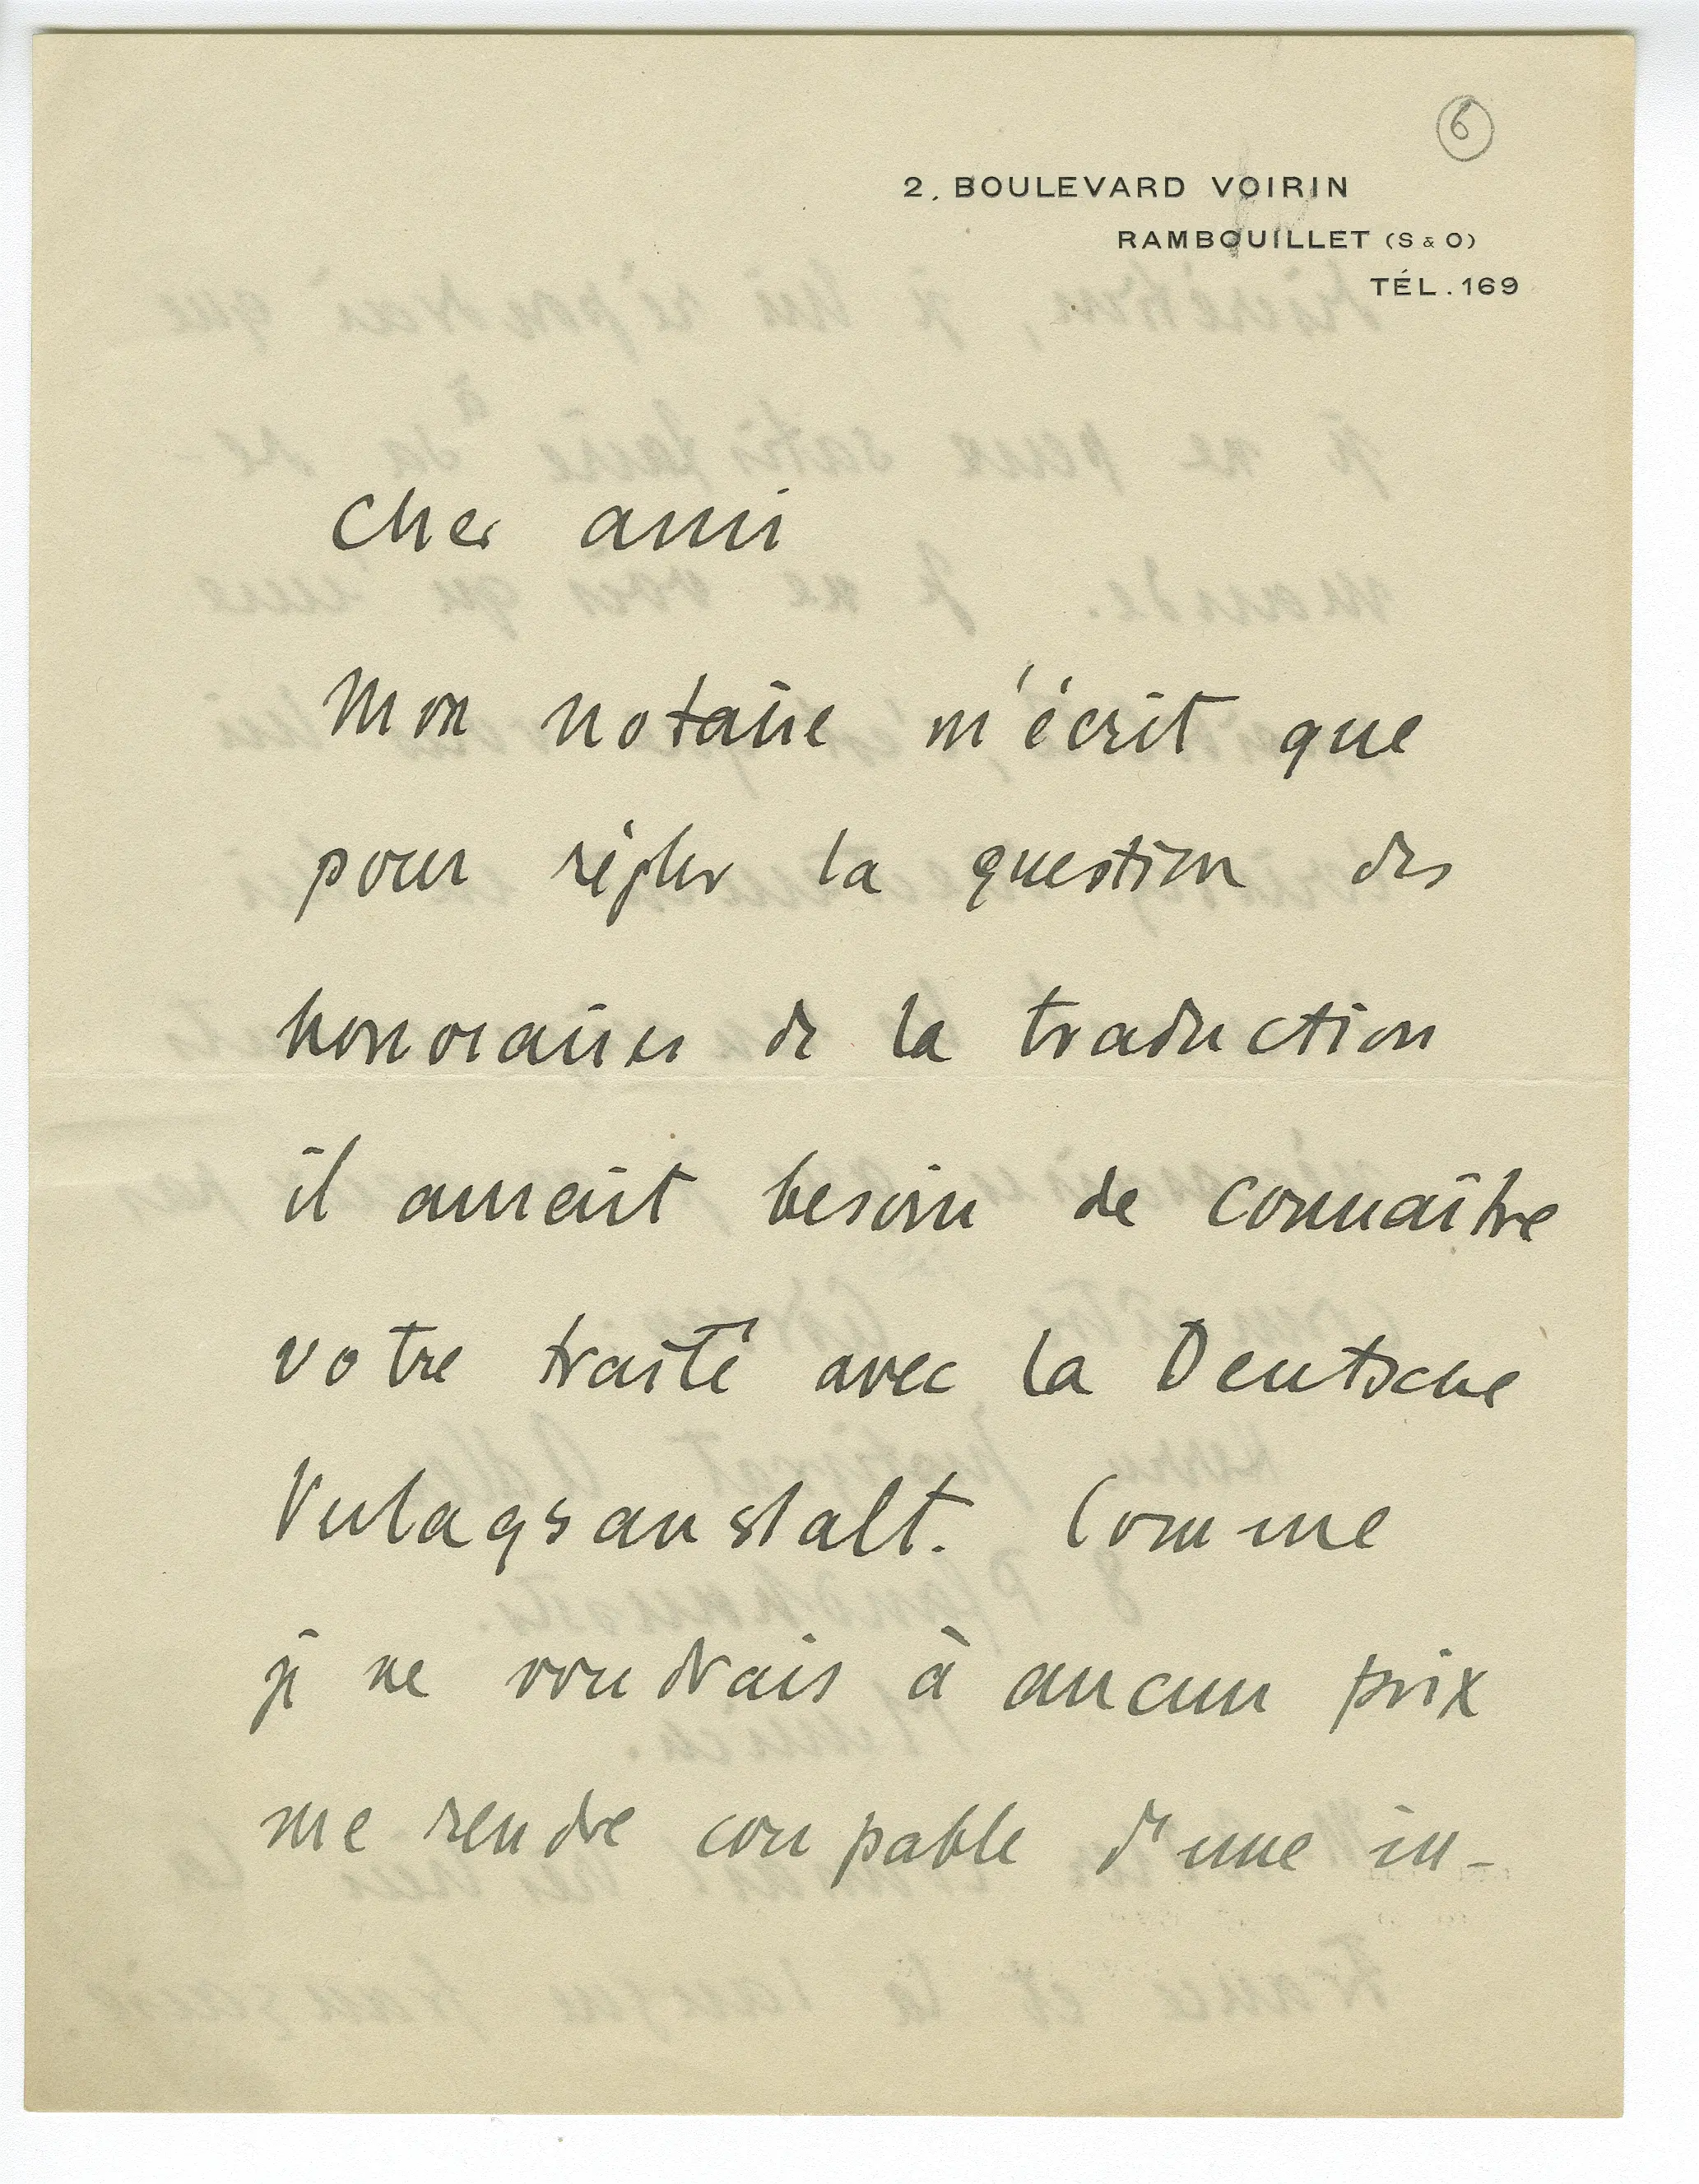 6
2. BOULEVARD VOIRIN
RAMBOUILLET (S & O)
TÉL. 169
Cher ami
Mon notaire m'écrit que
pour régler la question des
honoraires de la traduction
il aurait besoin de connaître
votre traité avec la Deutsche
Verlagsanstalt. Comme
je ne voudrais à aucun prix
me rendre coupable d'une in-